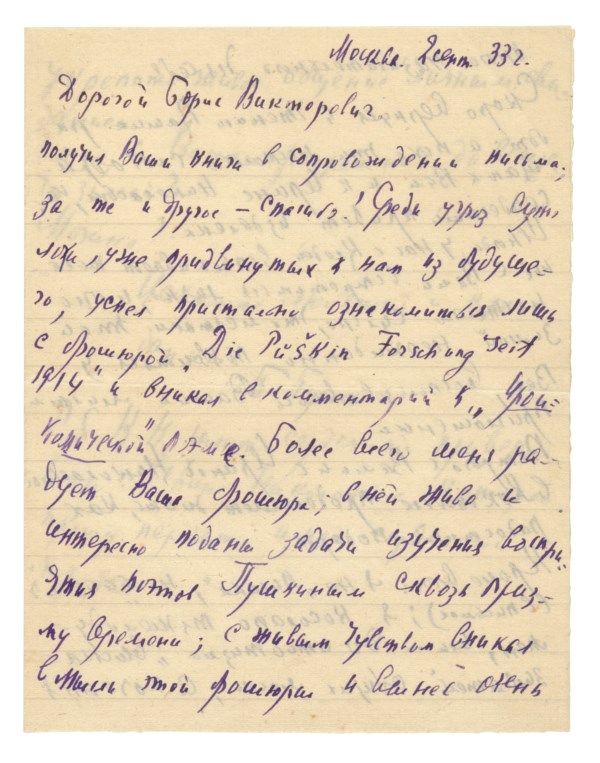 Москва. 2 сент. 33 г.
Дорогой Борис Викторович
получил Ваши книги в сопровождении письма;
за то и другое – спасибо! Среди угроз сут-
уже придвинутых к нам из будуще-
го, успел пристально ознакомиться лишь
с брошюрой "Die Puškin Forschung seit
1914" и вникал в комментарий к „Ирои-
комической" поэме. Более всего меня ра-
дует Ваша брошюра; в ней живо и
интересно поданы задачи изучения воспри-
ятия поэтов Пушкиным сквозь приз-
му времени; с живым чувством вникал
в мысли этой брошюры и в ней очень